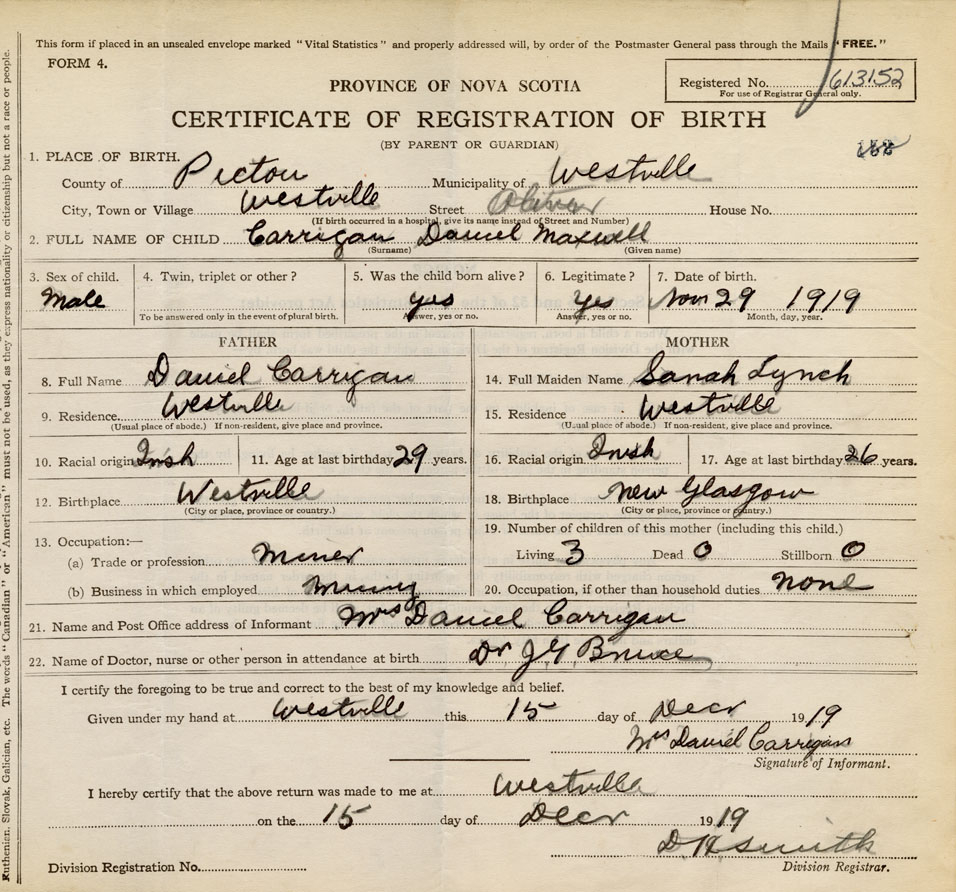 This form if placed in an unsealed envelope marked "Vital Statistics" and properly addressed will, by order of the Postmaster General pass through the Mails "FREE."
FORM 4.
Registered No. 613152
For use of Registrar General only.
PROVINCE OF NOVA SCOTIA
CERTIFICATE OF REGISTRATION OF BIRTH
(BY PARENT OR GUARDIAN)
1. PLACE OF BIRTH.
County of Pictou Municipality of Westville
City, Town or Village Westville Street Oliver House No.
(If birth occurred in a hospital, give its name instead of Street and Number)
2. FULL NAME OF CHILD Carrigan Daniel Maxwell
(Surname) (Given name)
3. Sex of child. 4. Twin, triplet or other? 5. Was the child born alive? 6. Legitimate? 7. Date of birth.
Male yes Yes Nov 29 1919
To be answered only in the event of plural birth. Answer, yes or no. Answer, yes or no. Month, day, year.
FATHER
8. Full Name Daniel Carrigan
9. Residence Westville
(Usual place of abode.) If non-resident, give place and province.
10. Racial origin Irish 11. Age at last birthday 29 years.
12. Birthplace Westville
(City or place, province or country.)
13. Occupation:—
(a) Trade or profession Miner
(b) Business in which employed Mining
MOTHER
14. Full Maiden Name Sarah Lynch
15. Residence Westville
(Usual place of abode.) If non-resident, give place and province.
16. Racial origin Irish 17. Age at last birthday 26 years.
18. Birthplace New Glasgow
(City or place, province or country.)
19. Number of children of this mother (including this child.)
Living 3 Dead 0 Stillborn 0
20. Occupation, if other than household duties none
21. Name and Post Office address of Informant Mrs Daniel Carrigan
22. Name of Doctor, nurse or other person in attendance at birth Dr J G Bruce
I certify the foregoing to be true and correct to the best of my knowledge and belief.
Given under my hand at Westville this 15 day of Decr 1919
Mrs Daniel Carrigan
Signature of Informant.
I hereby certify that the above return was made to me at Westville
on the 15 day of Decr 1919
D H Smith
Division Registration No. Division Registrar.
Ruthenian, Slovak, Galician, etc. The words "Canadian" or "American" must not be used, as they express nationality or citizenship but not a race or people.